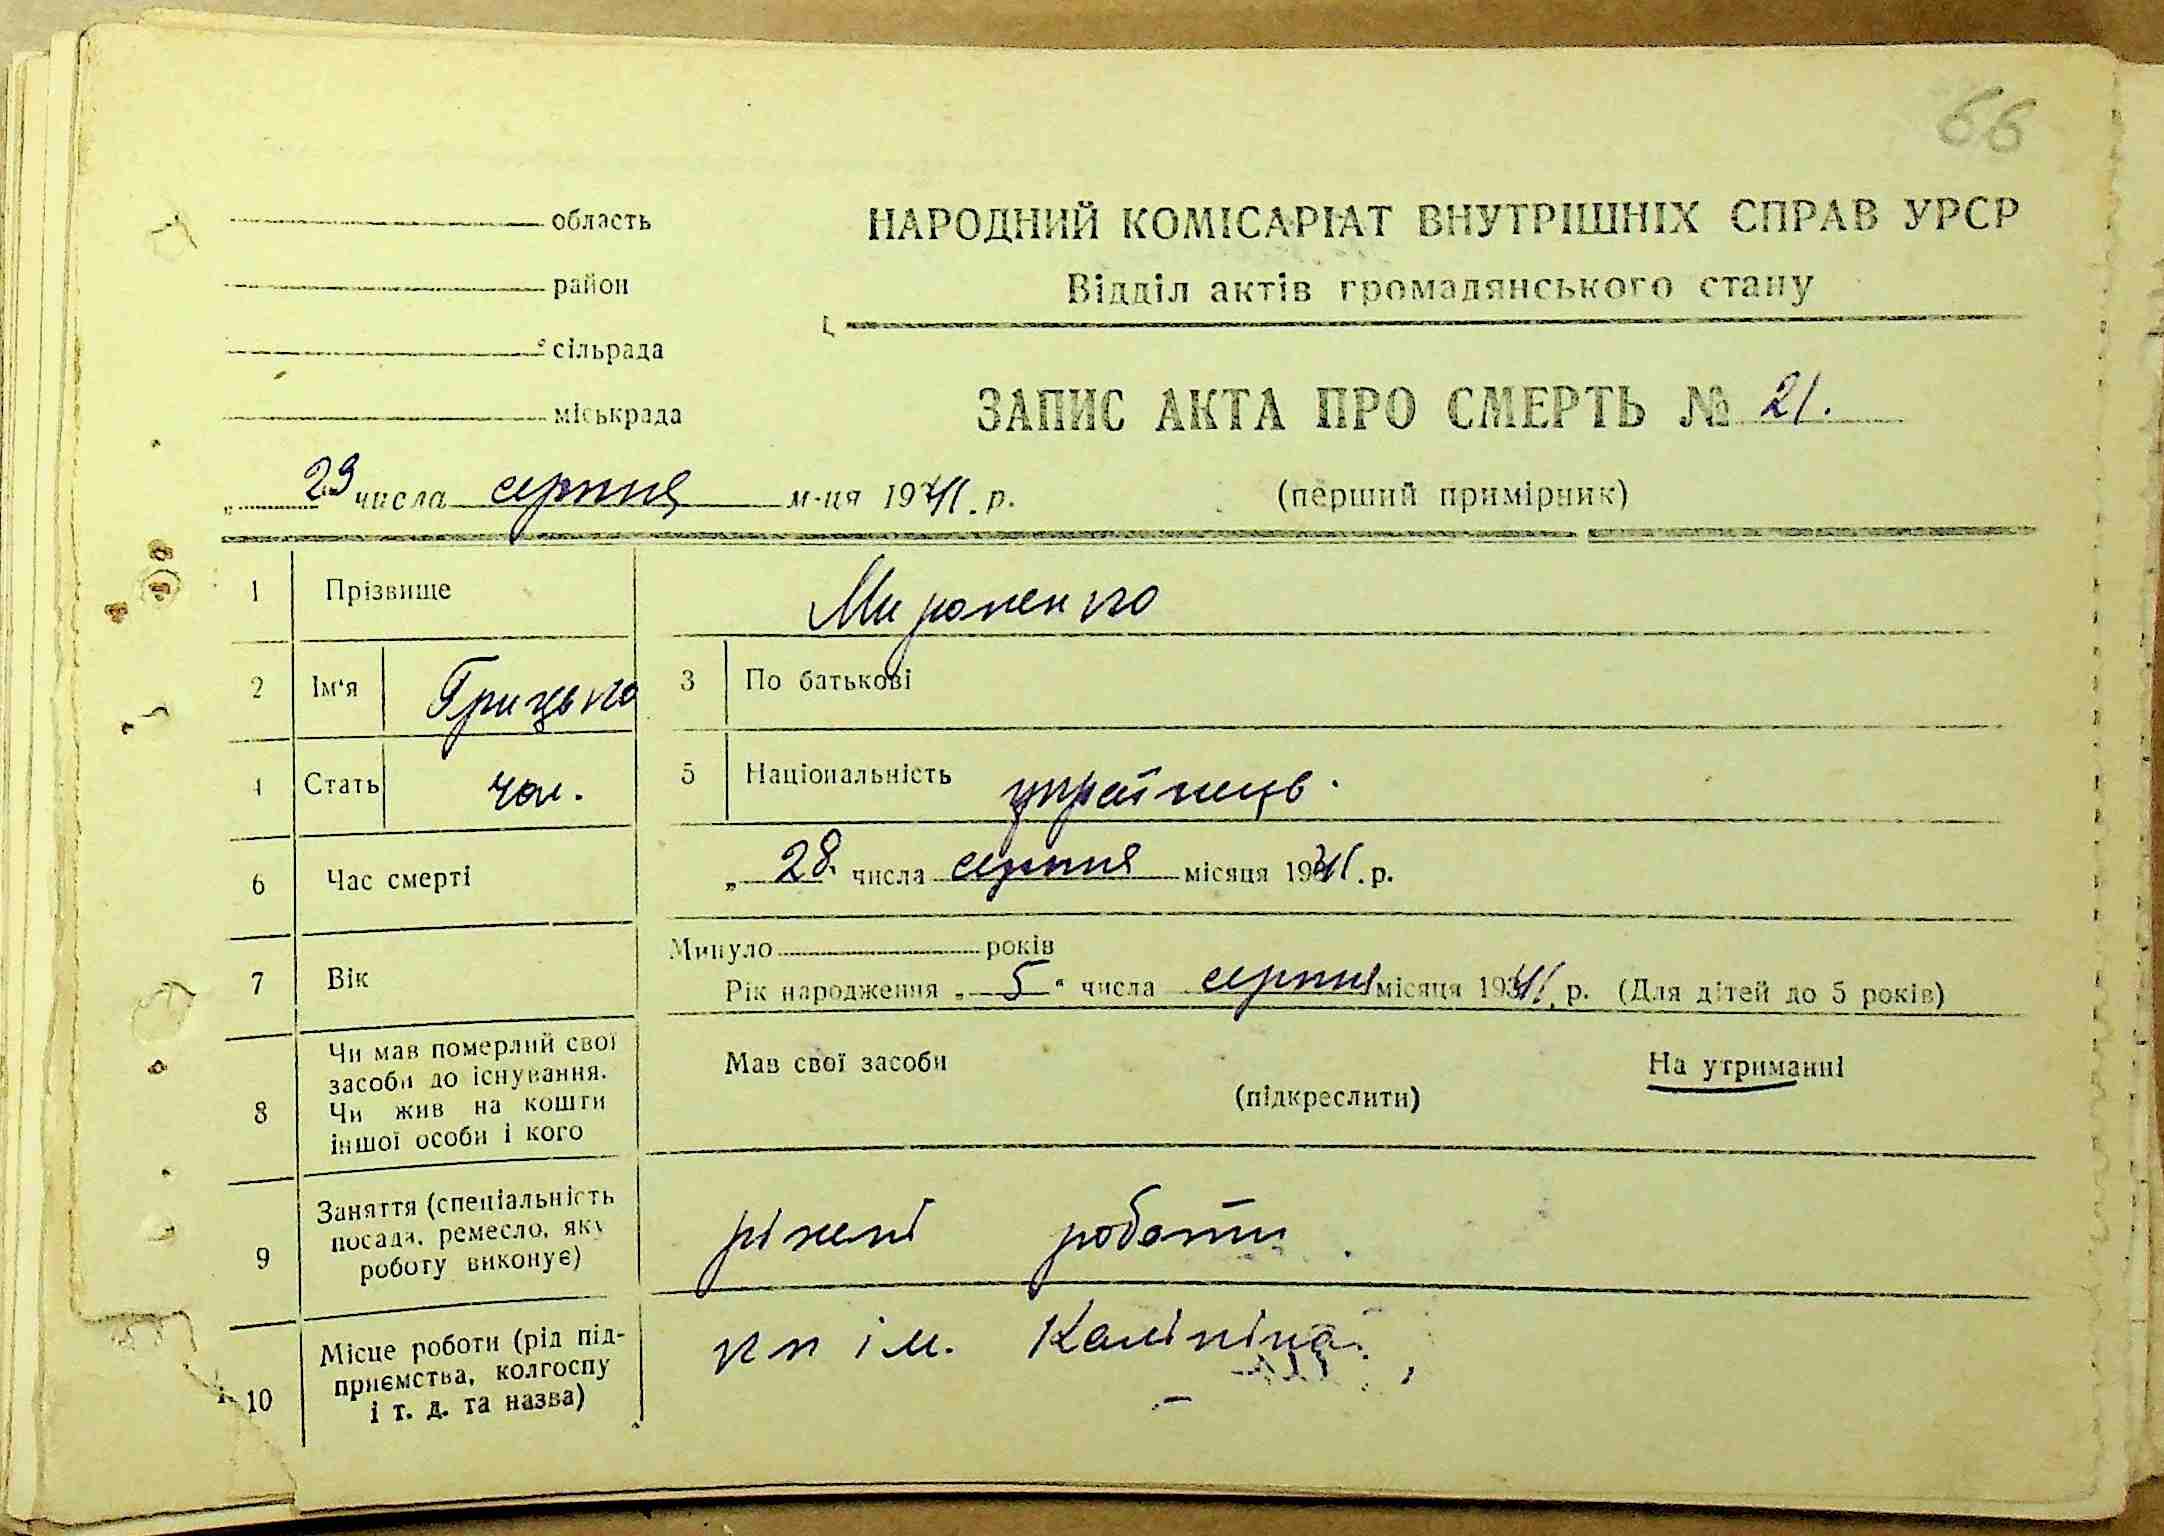 66
область
НАРОДНИЙ КОМІСАРІАТ ВНУТРІШНІХ СПРАВ УРСР
район
Відділ актів громадянського стану
сільрада
міськрада
ЗАПИС АКТА ПРО СМЕРТЬ № 21.
„ 29 числа серпня м-ця 1941. р.
(перший примірник)
1 Прізвище Мироненко
2 Ім'я Грицько 3 По батькові
4 Стать чол. 5 Національність українець.
6 Час смерті „ 28. числа серпня місяця 1941. р.
7 Вік Минуло років
Рік народження „ 5 “ числа серпня місяця 1941. р. (Для дітей до 5 років)
8 Чи мав померлий свої
засоби до існування.
Чи жив на кошти
іншої особи і кого
Мав свої засоби
(підкреслити)
На утриманні
9 Заняття (спеціальність
посада, ремесло, яку
роботу виконує)
ріжні роботи
10 Місце роботи (рід під-
приємства, колгоспу
і т. д. та назва)
кп ім. Калініна